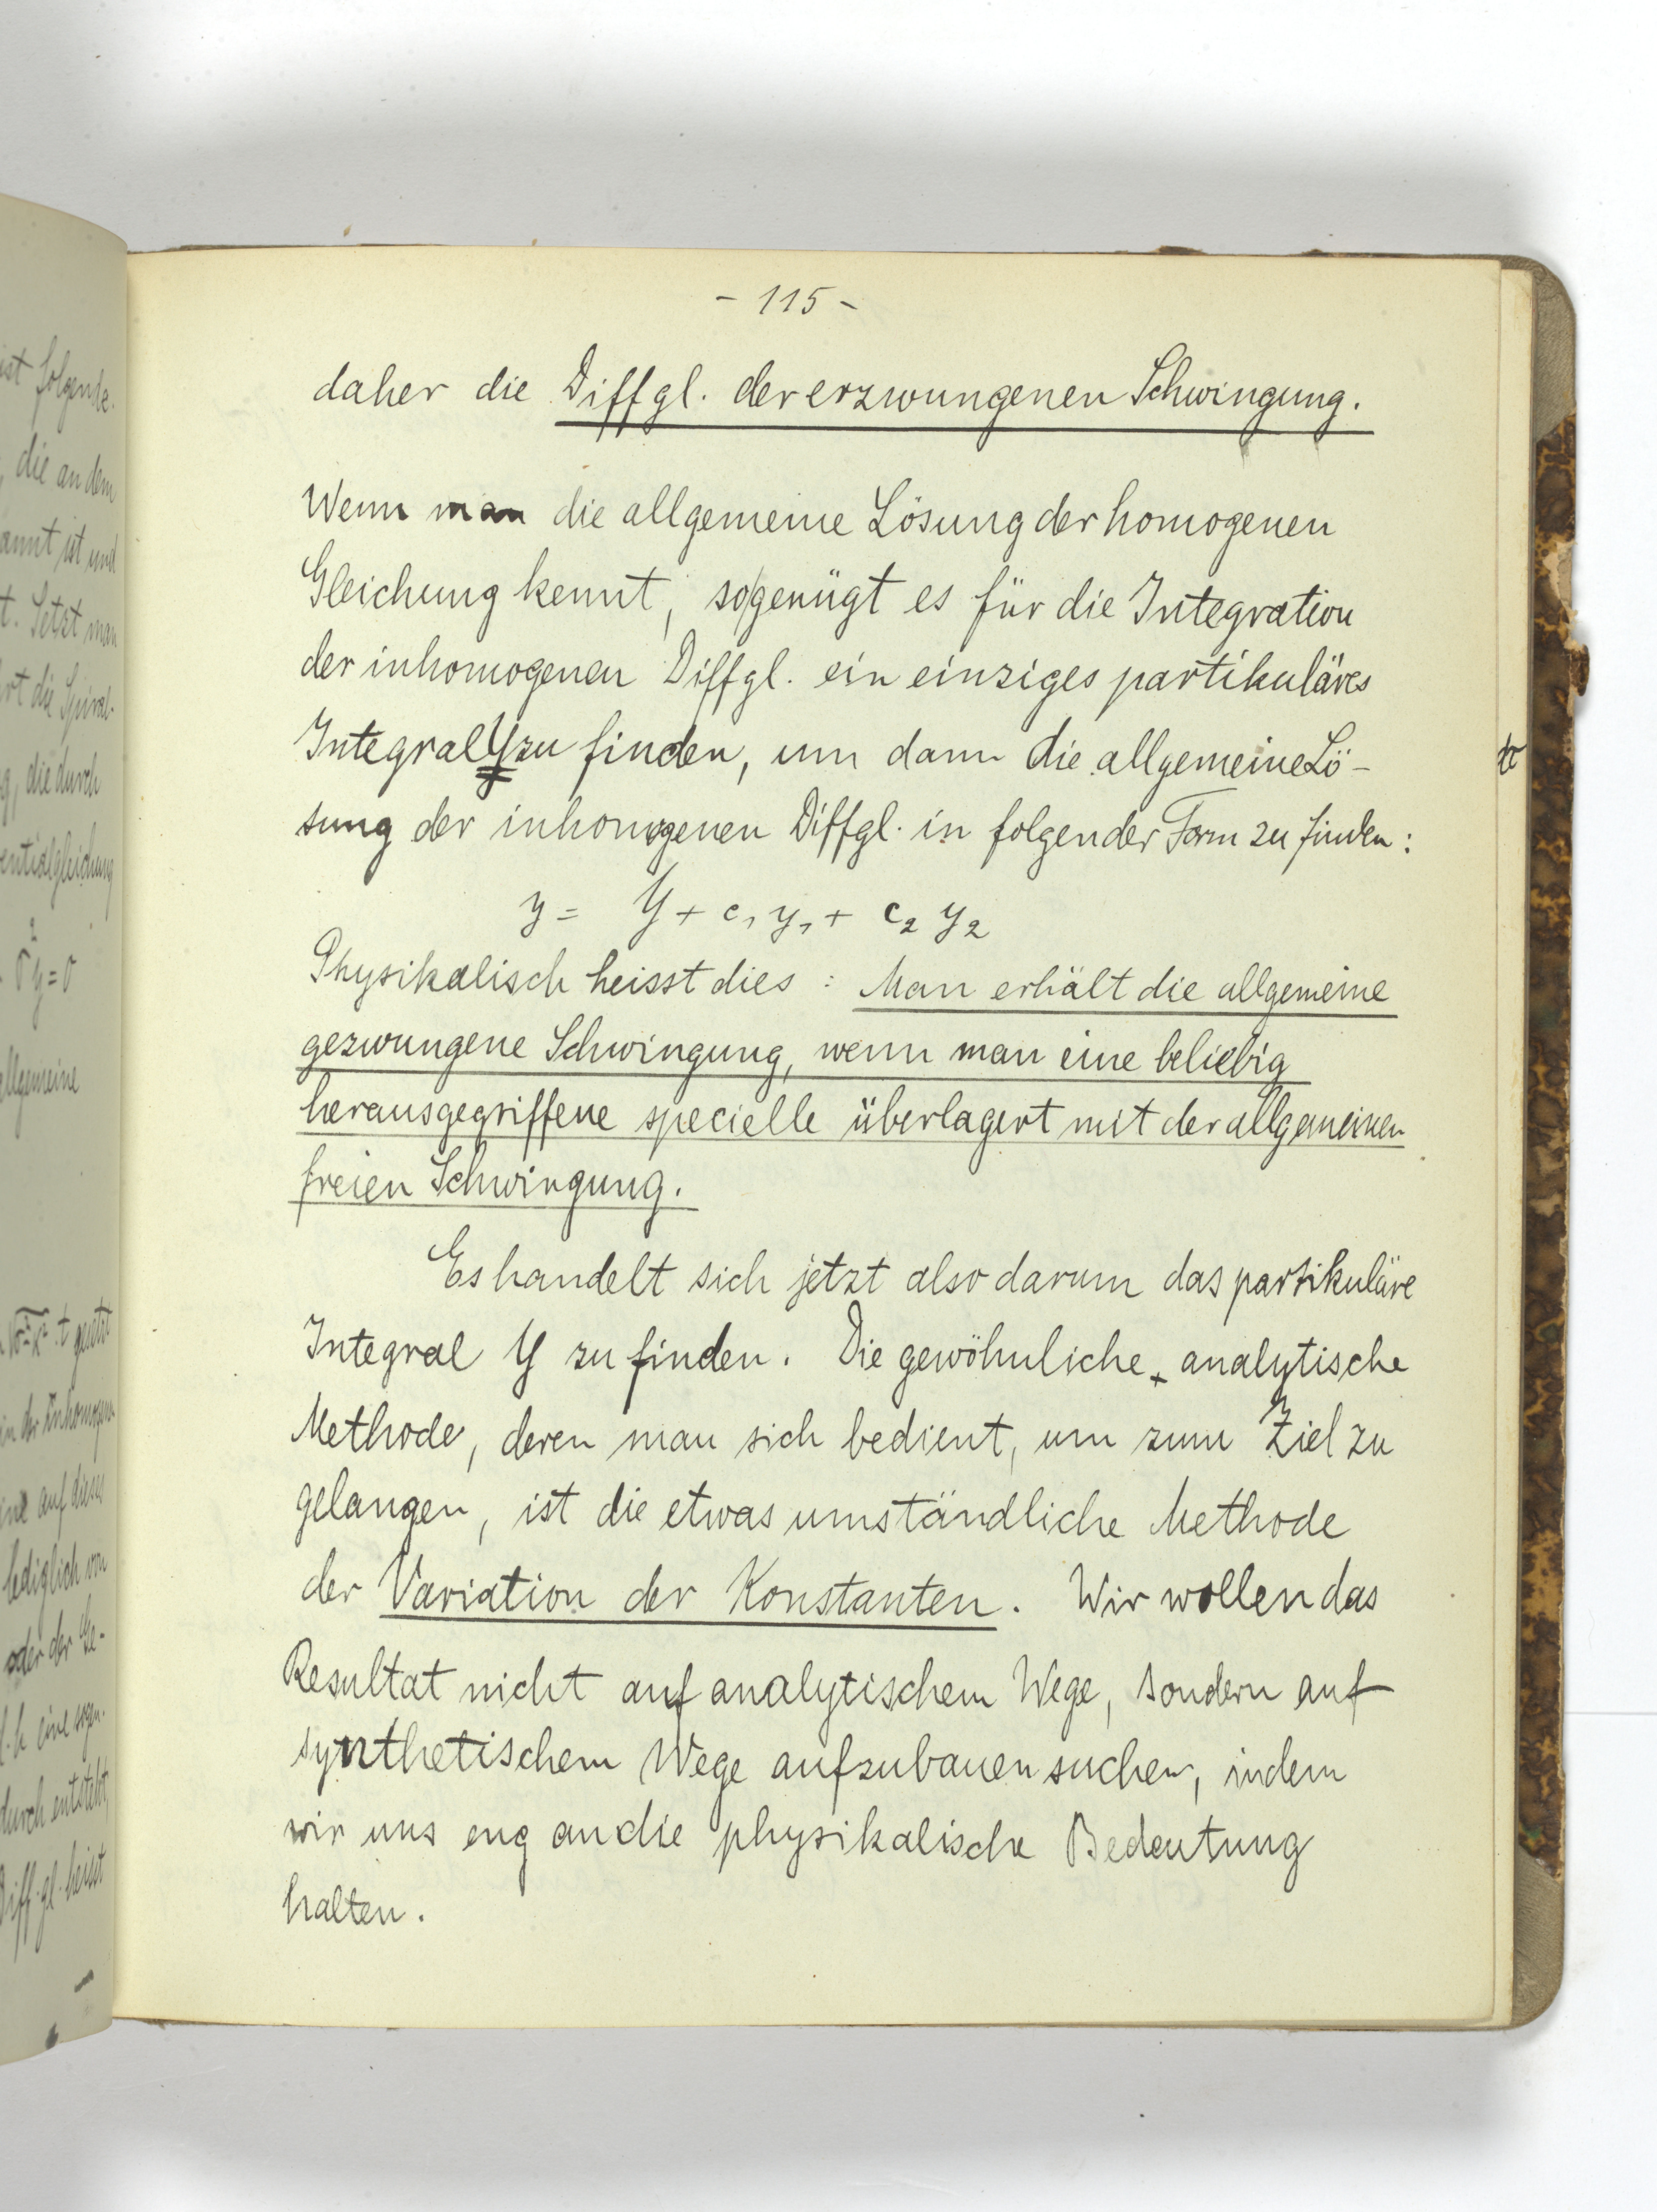 ist folgende
, die an dem
annt ist und
t. Setzt man
rt die Spiral-
g, die durch
entialgleichung
allgemeine
in der inhomogen
auf dieses
lediglich von
oder der Ge-
d.h eine sogen.
durch entsteht,
Diff.gl. heisst
- 115 -
daher die Diffgl. der erzwungenen Schwingung.
Wenn man die allgemeine Lösung der homogenen
Gleichung kennt, so genügt es für die Integration
der inhomogenen Diffgl. ein einziges partikuläres
Integral Y zu finden, um dann die allgemeine Lö-
sung der inhomogenen Diffgl. in folgender Form zu finden:
y = Y + c₁ y₁ + c₂ y₂
Physikalisch heisst dies : Man erhält die allgemeine
gezwungene Schwingung, wenn man eine beliebig
herausgegriffene specielle überlagert mit der allgemeinen
freien Schwingung.
Es handelt sich jetzt also darum das partikuläre
Integral Y zu finden. Die gewöhnliche, analytische
Methode, deren man sich bedient, um zum Ziel zu
gelangen, ist die etwas umständliche Methode
der Variation der Konstanten. Wir wollen das
Resultat nicht auf analytischem Wege, sondern auf
synthetischem Wege aufzubauen suchen, indem
wir uns eng an die physikalische Bedeutung
halten.